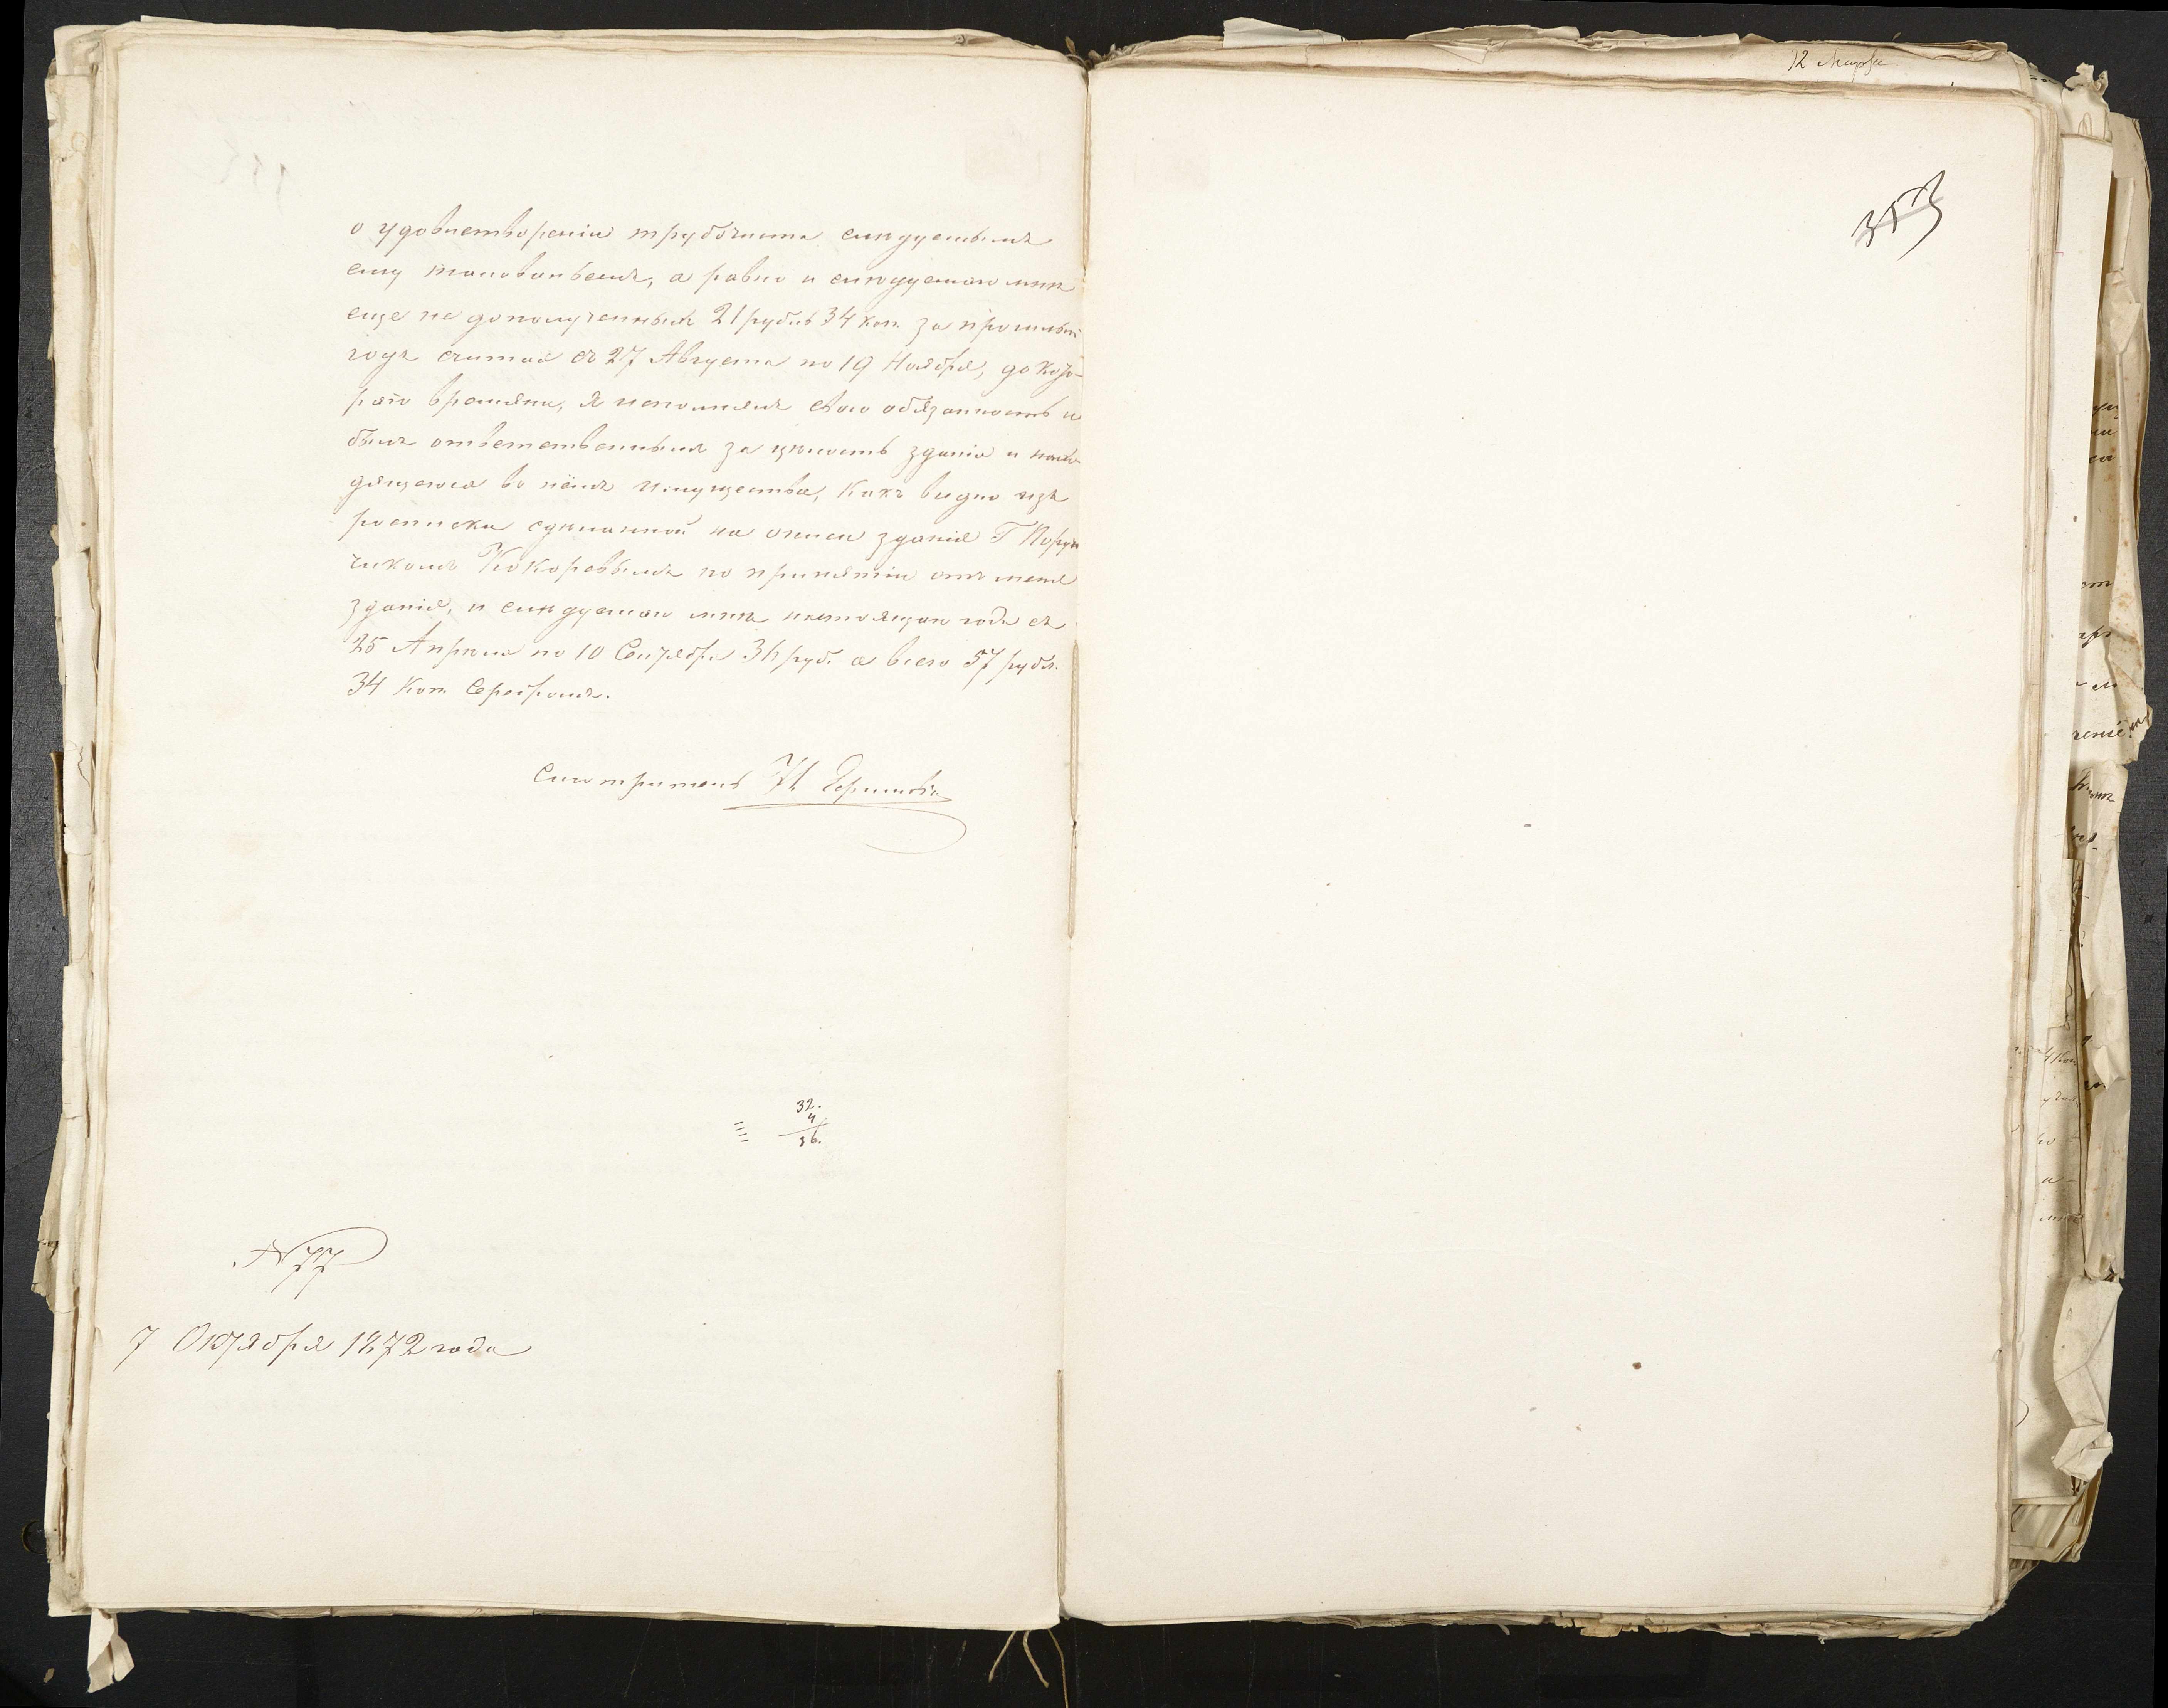 о удовлетвореніи трубочиста слѣдуемымъ
ему жалованьемъ, а равно и слѣдуемаго мнѣ
еще не дополученныхъ 21 рубль 34 коп. за прошлый
годъ считая съ 27 Августа по 19 Ноября, до кото-
раго времяни, я исполнялъ свою обязанность и
былъ ответственнымъ за цѣлость зданія и нахо-
дящегося въ нёмъ имущества, какъ видно изъ
росписки сдѣланной на описи зданія Г Пору
чикомъ Кокоревымъ по принятіи отъ меня
зданія, и слѣдуемаго мнѣ настоящаго года съ
25 Апрѣля по 10 Сентября 36 руб. а всего 57 рубл.
34 коп. Серебромъ.
Смотритель
32.
4
36.
N 77
7 Октября 1872 года
12 Марта